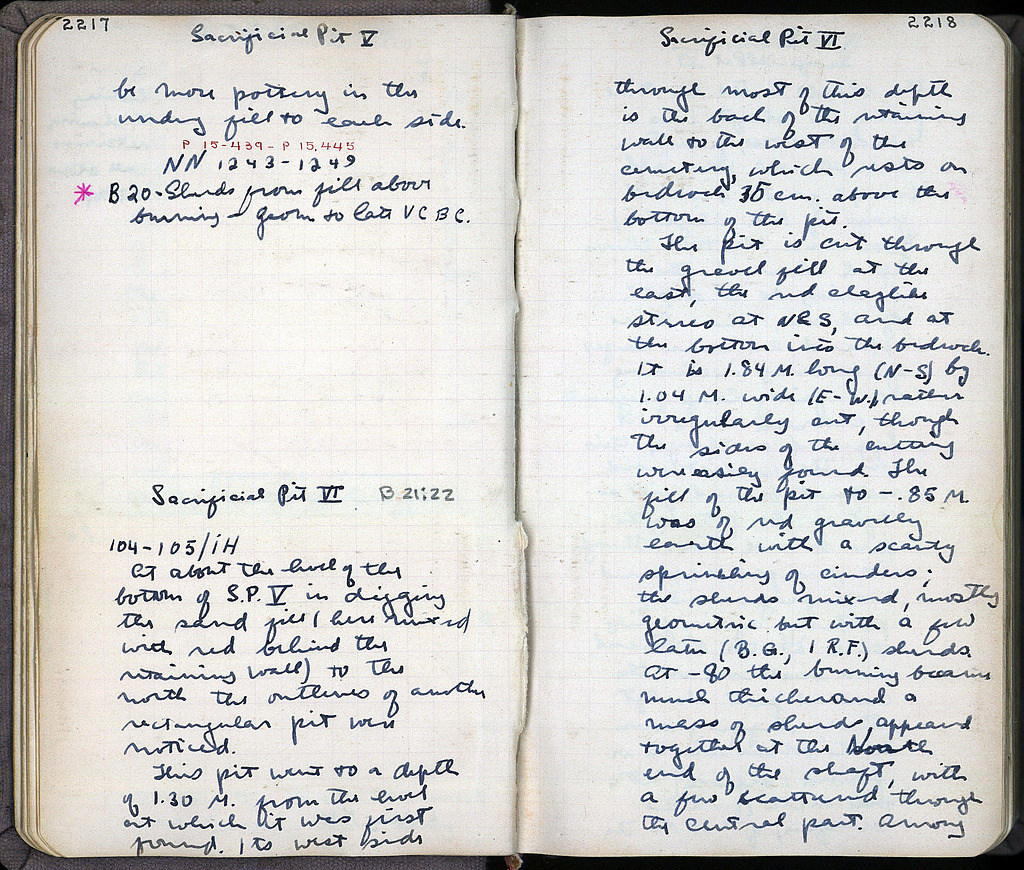 2217
Sacrificial Pit V
be more pottery in the
undug fill to each side.
P 15,439 - P 15,445
NN 1243-1249
* B 20 - Sherds from fill above
burning - geom to late V C B C.
Sacrificial Pit VI B 21:22
104-105/ΙΗ
At about the level of the
bottom of S.P. V in digging
the sand fill (here mixed
with red behind the
retaining wall) to the
north the outlines of another
rectangular pit were
noticed.
This pit went to a depth
of 1.30 M. from the level
at which it was first
found. Its west side
2218
Sacrificial Pit VI
through most of this depth
is the back of the retaining
wall to the west of the
cemetery, which rests on
bedrock 35 cm. above the
bottom of the pit.
The pit is cut through
the gravel fill at the
east, the red claylike
stereo at N & S, and at
the bottom into the bedrock.
It is 1.84 M. long (N-S) by
1.04 M. wide (E-W.), rather
irregularly cut, though
the sides of the cutting
were easily found. The
fill of the pit to -.85 M.
was of red gravelly
earth with a scanty
sprinkling of cinders;
the sherds mixed, mostly
geometric but with a few
later (B.G., 1 R.F.) sherds.
At -90 the burning became
much thicker and a
mass of sherds appeared
together at the
end of the shaft, with
a few scattered through
the central part. Among